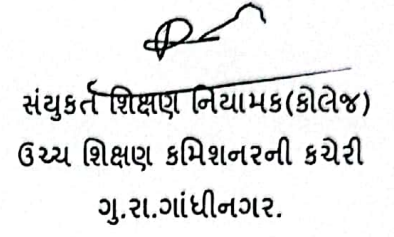 સંયુકર્ત શિક્ષણ નિયામક(કોલેજ)
ઉચ્ચ શિક્ષણ કમિશનરની કચેરી
ગુ.રા.ગાંધીનગર.